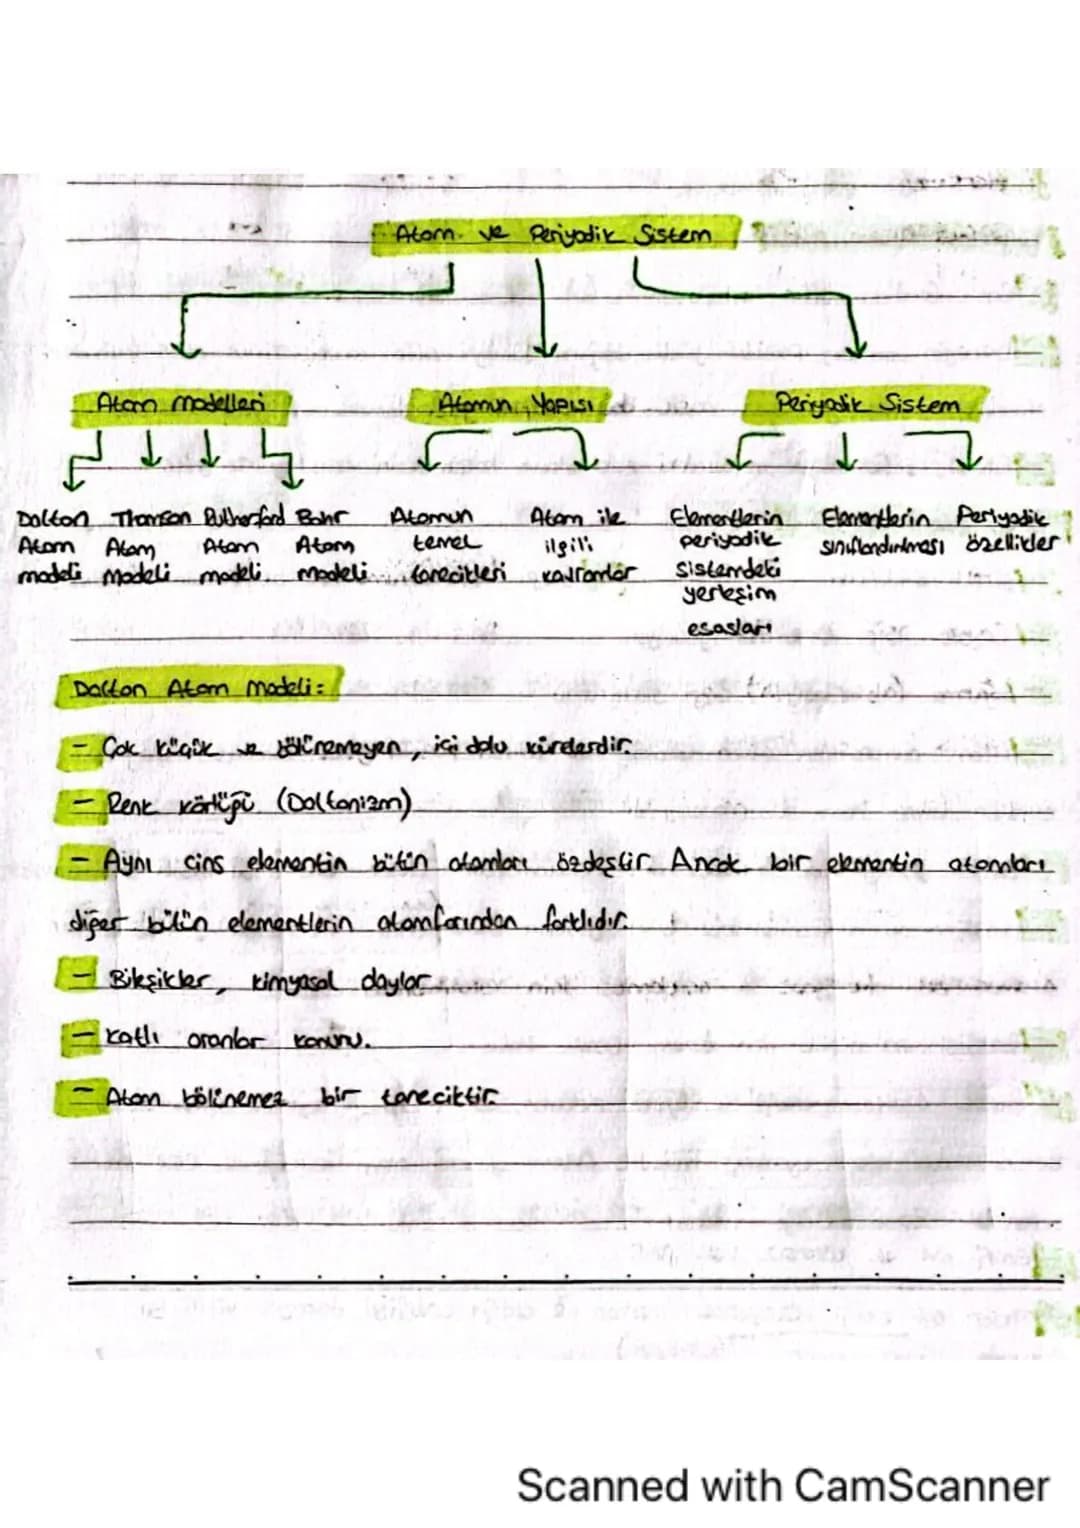 Atom ve Periyodik Sistem
Atom modelleri Atomun Yapısı Periyodik Sistem
Dalton Thomson Rutherford Bohr Atomun Atom ile Elementlerin Elementlerin Periyodik
Atom Atom Atom Atom temel ilgili periyodik sınıflandırılması özellikler
modeli Modeli modeli modeli tanecikleri kavramlar sistemdeki
yerleşim
esasları
Dalton Atom Modeli:
- Çok küçük ve bölünemeyen, içi dolu kürelerdir.
- Renk körlüğü (Daltonizm)
- Aynı cins elementin bütün atomları özdeştir. Ancak bir elementin atomları
diğer bütün elementlerin atomlarından farklıdır.
- Bileşikler, kimyasal olaylar
- Katlı oranlar kanunu.
- Atom bölünemez bir taneciktir.
Scanned with CamScanner